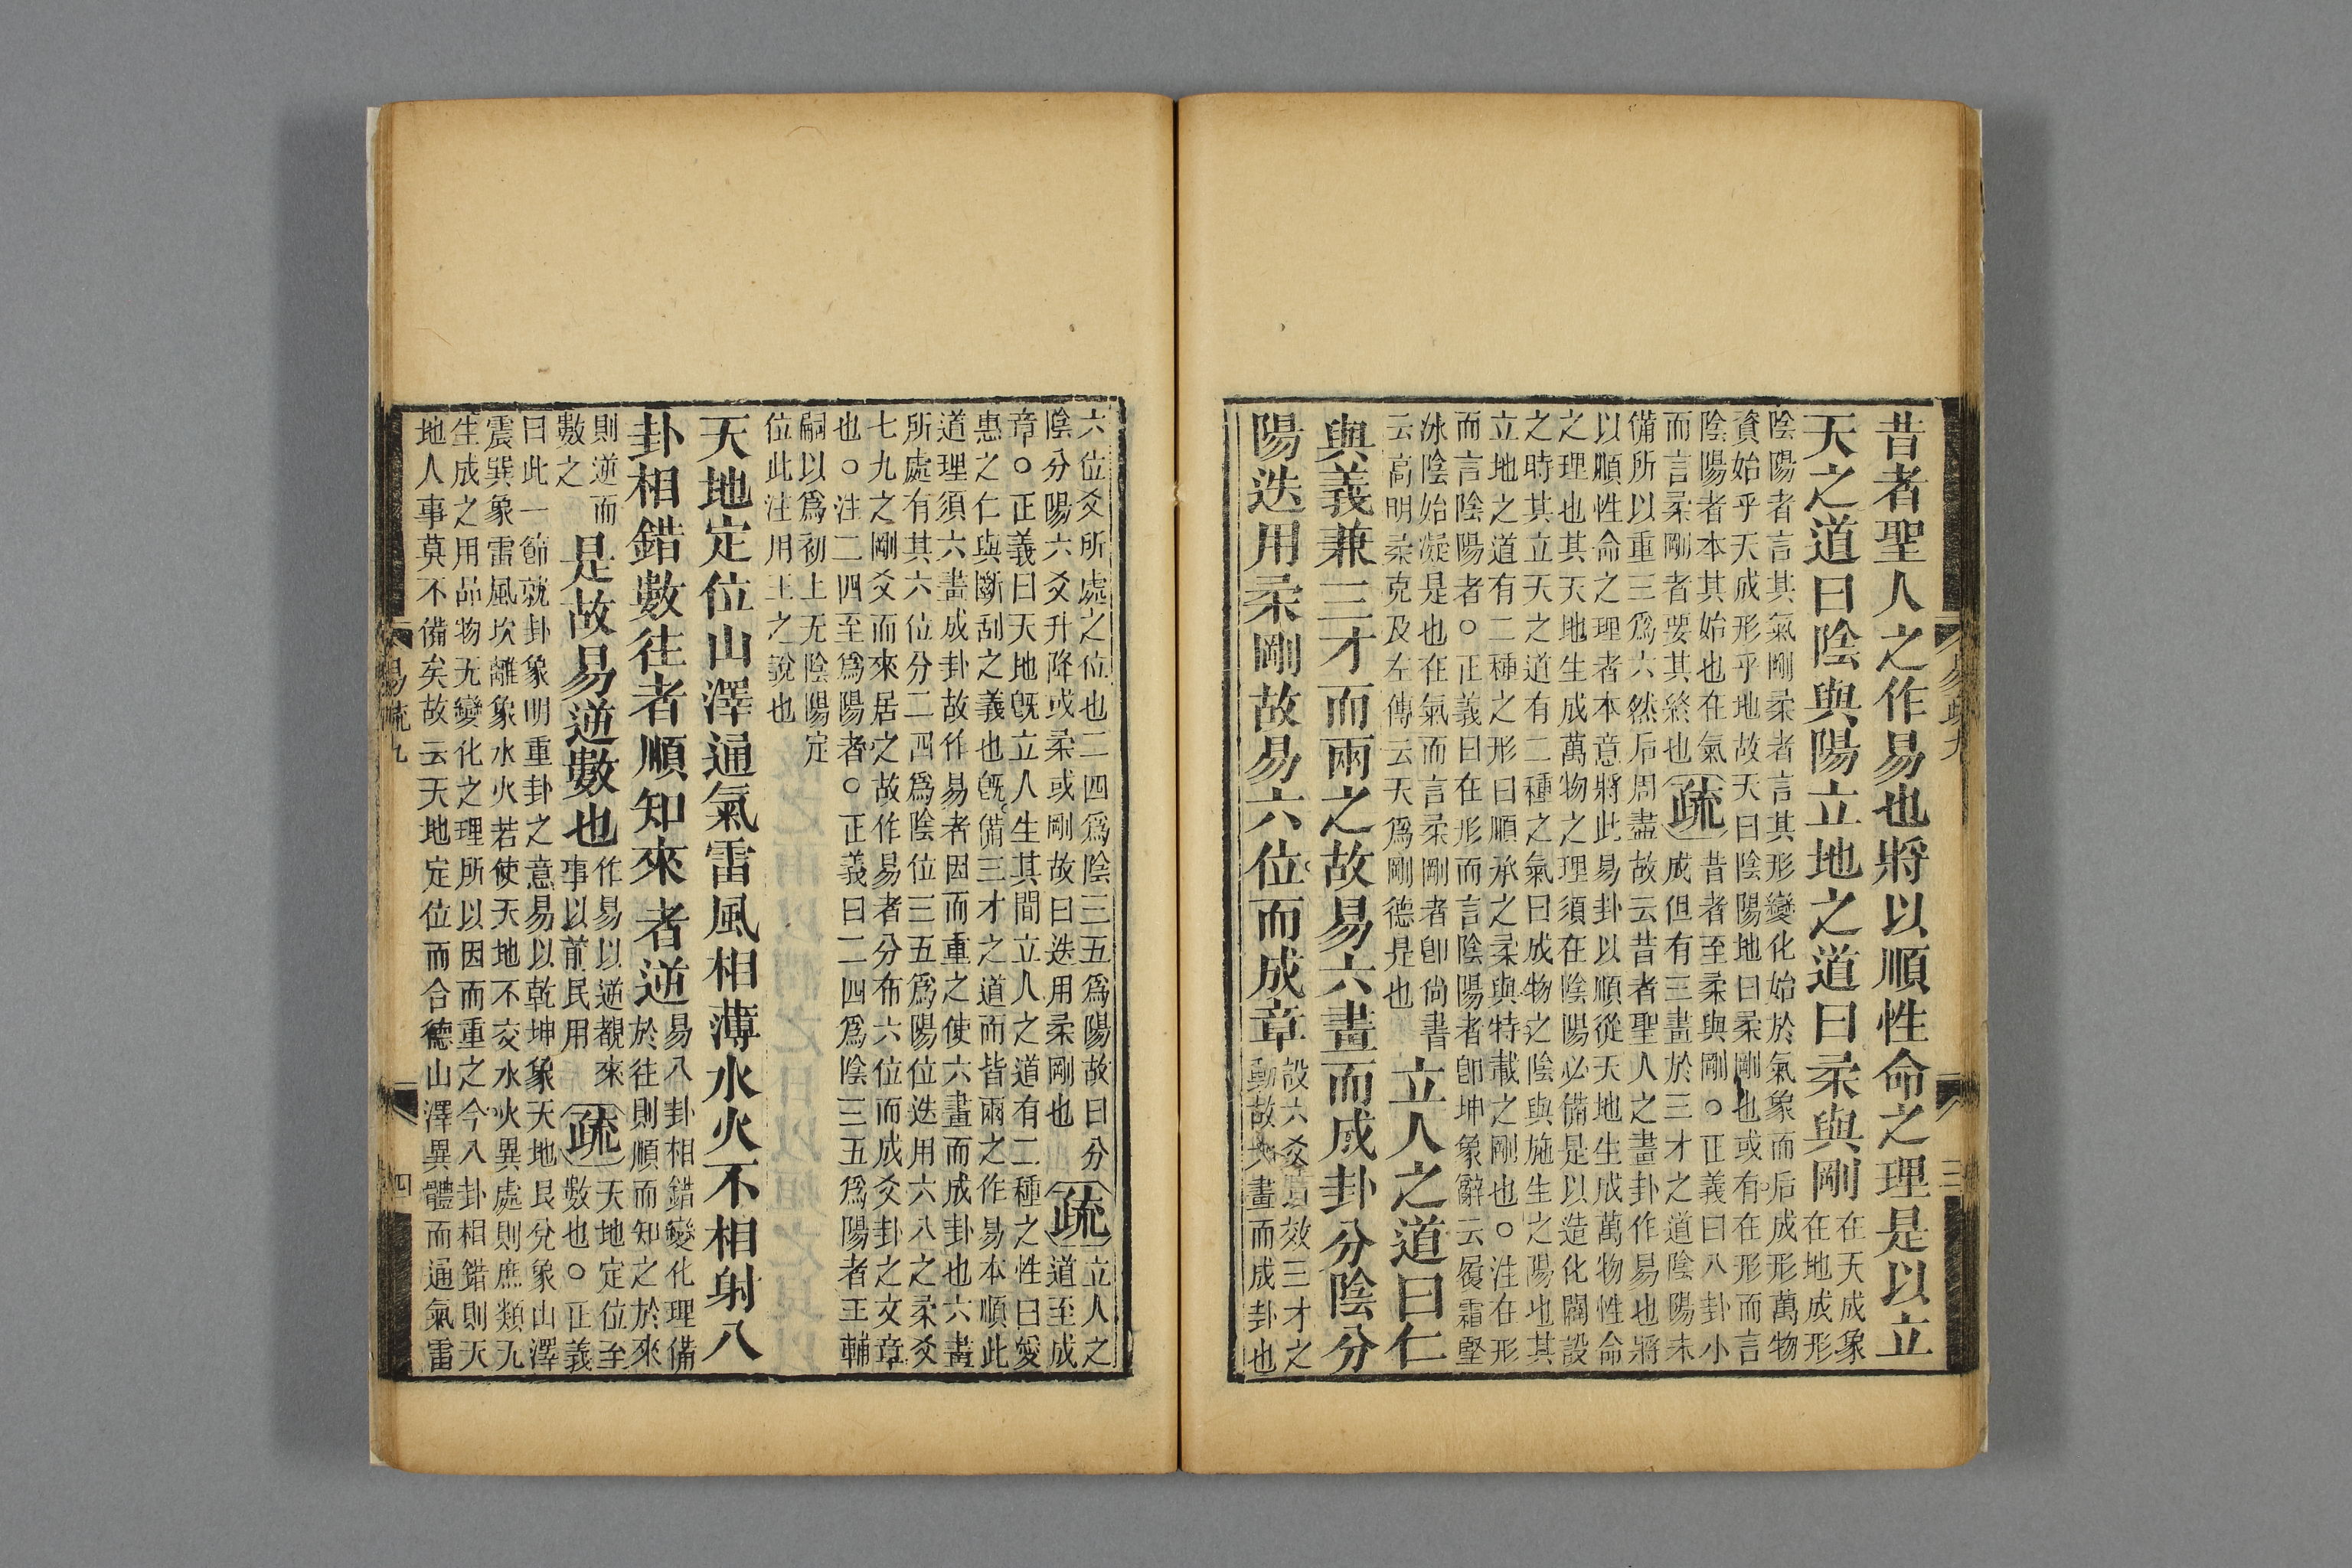 昔者聖人之作易也將以順性命之理是以立
天之道曰陰與陽立地之道曰柔與剛
在天成象
在地成形
陰陽者言其氣剛柔者言其形變化始於氣象而后成形萬物
資始乎天成形乎地故天曰陰陽地曰柔剛也或有在形而言
陰陽者本其始也在氣
而言柔剛者要其終也
疏
昔者至柔與剛○正義曰八卦小
成但有三畫於三才之道陰陽未
備所以重三爲六然后周盡故云昔者聖人之畫卦作易也將
以順性命之理者本意將此易卦以順從天地生成萬物性命
之理也其天地生成萬物之理須在陰陽必備是以造化闢設
之時其立天之道有二種之氣曰成物之陰與施生之陽也其
立地之道有二種之形曰順承之柔與特載之剛也○注在形
而言陰陽者○正義曰在形而言陰陽者卽坤象辭云履霜堅
冰陰始凝是也在氣而言柔剛者卽尙書
云高明柔克及左傳云天爲剛德是也
立人之道曰仁
與義兼三才而兩之故易六畫而成卦分陰分
陽迭用柔剛故易六位而成章
設六爻效三才之
動故六畫而成卦也
易疏九
三
六位爻所處之位也二四爲陰三五爲陽故曰分
陰分陽六爻升降或柔或剛故曰迭用柔剛也
疏
立人之
道至成
章○正義曰天地旣立人生其間立人之道有二種之性曰愛
惠之仁與斷刮之義也旣備三才之道而皆兩之作易本順此
道理須六畫成卦故作易者因而重之使六畫而成卦也六畫
所處有其六位分二四爲陰位三五爲陽位迭用六八之柔爻
七九之剛爻而來居之故作易者分布六位而成爻卦之文章
也○注二四至爲陽者○正義曰二四爲陰三五爲陽者王輔
嗣以爲初上无陰陽定
位此注用王之說也
天地定位山澤通氣雷風相薄水火不相射八
卦相錯數往者順知來者逆
易八卦相錯變化理備
於往則順而知之於來
則逆而
數之
是故易逆數也
作易以逆覩來
事以前民用
疏
天地定位至
數也○正義
曰此一節就卦象明重卦之意易以乾坤象天地艮兌象山澤
震巽象雷風坎離象水火若使天地不交水火異處則庶類无
生成之用品物无變化之理所以因而重之今八卦相錯則天
地人事莫不備矣故云天地定位而合德山澤異體而通氣雷
易疏九
四